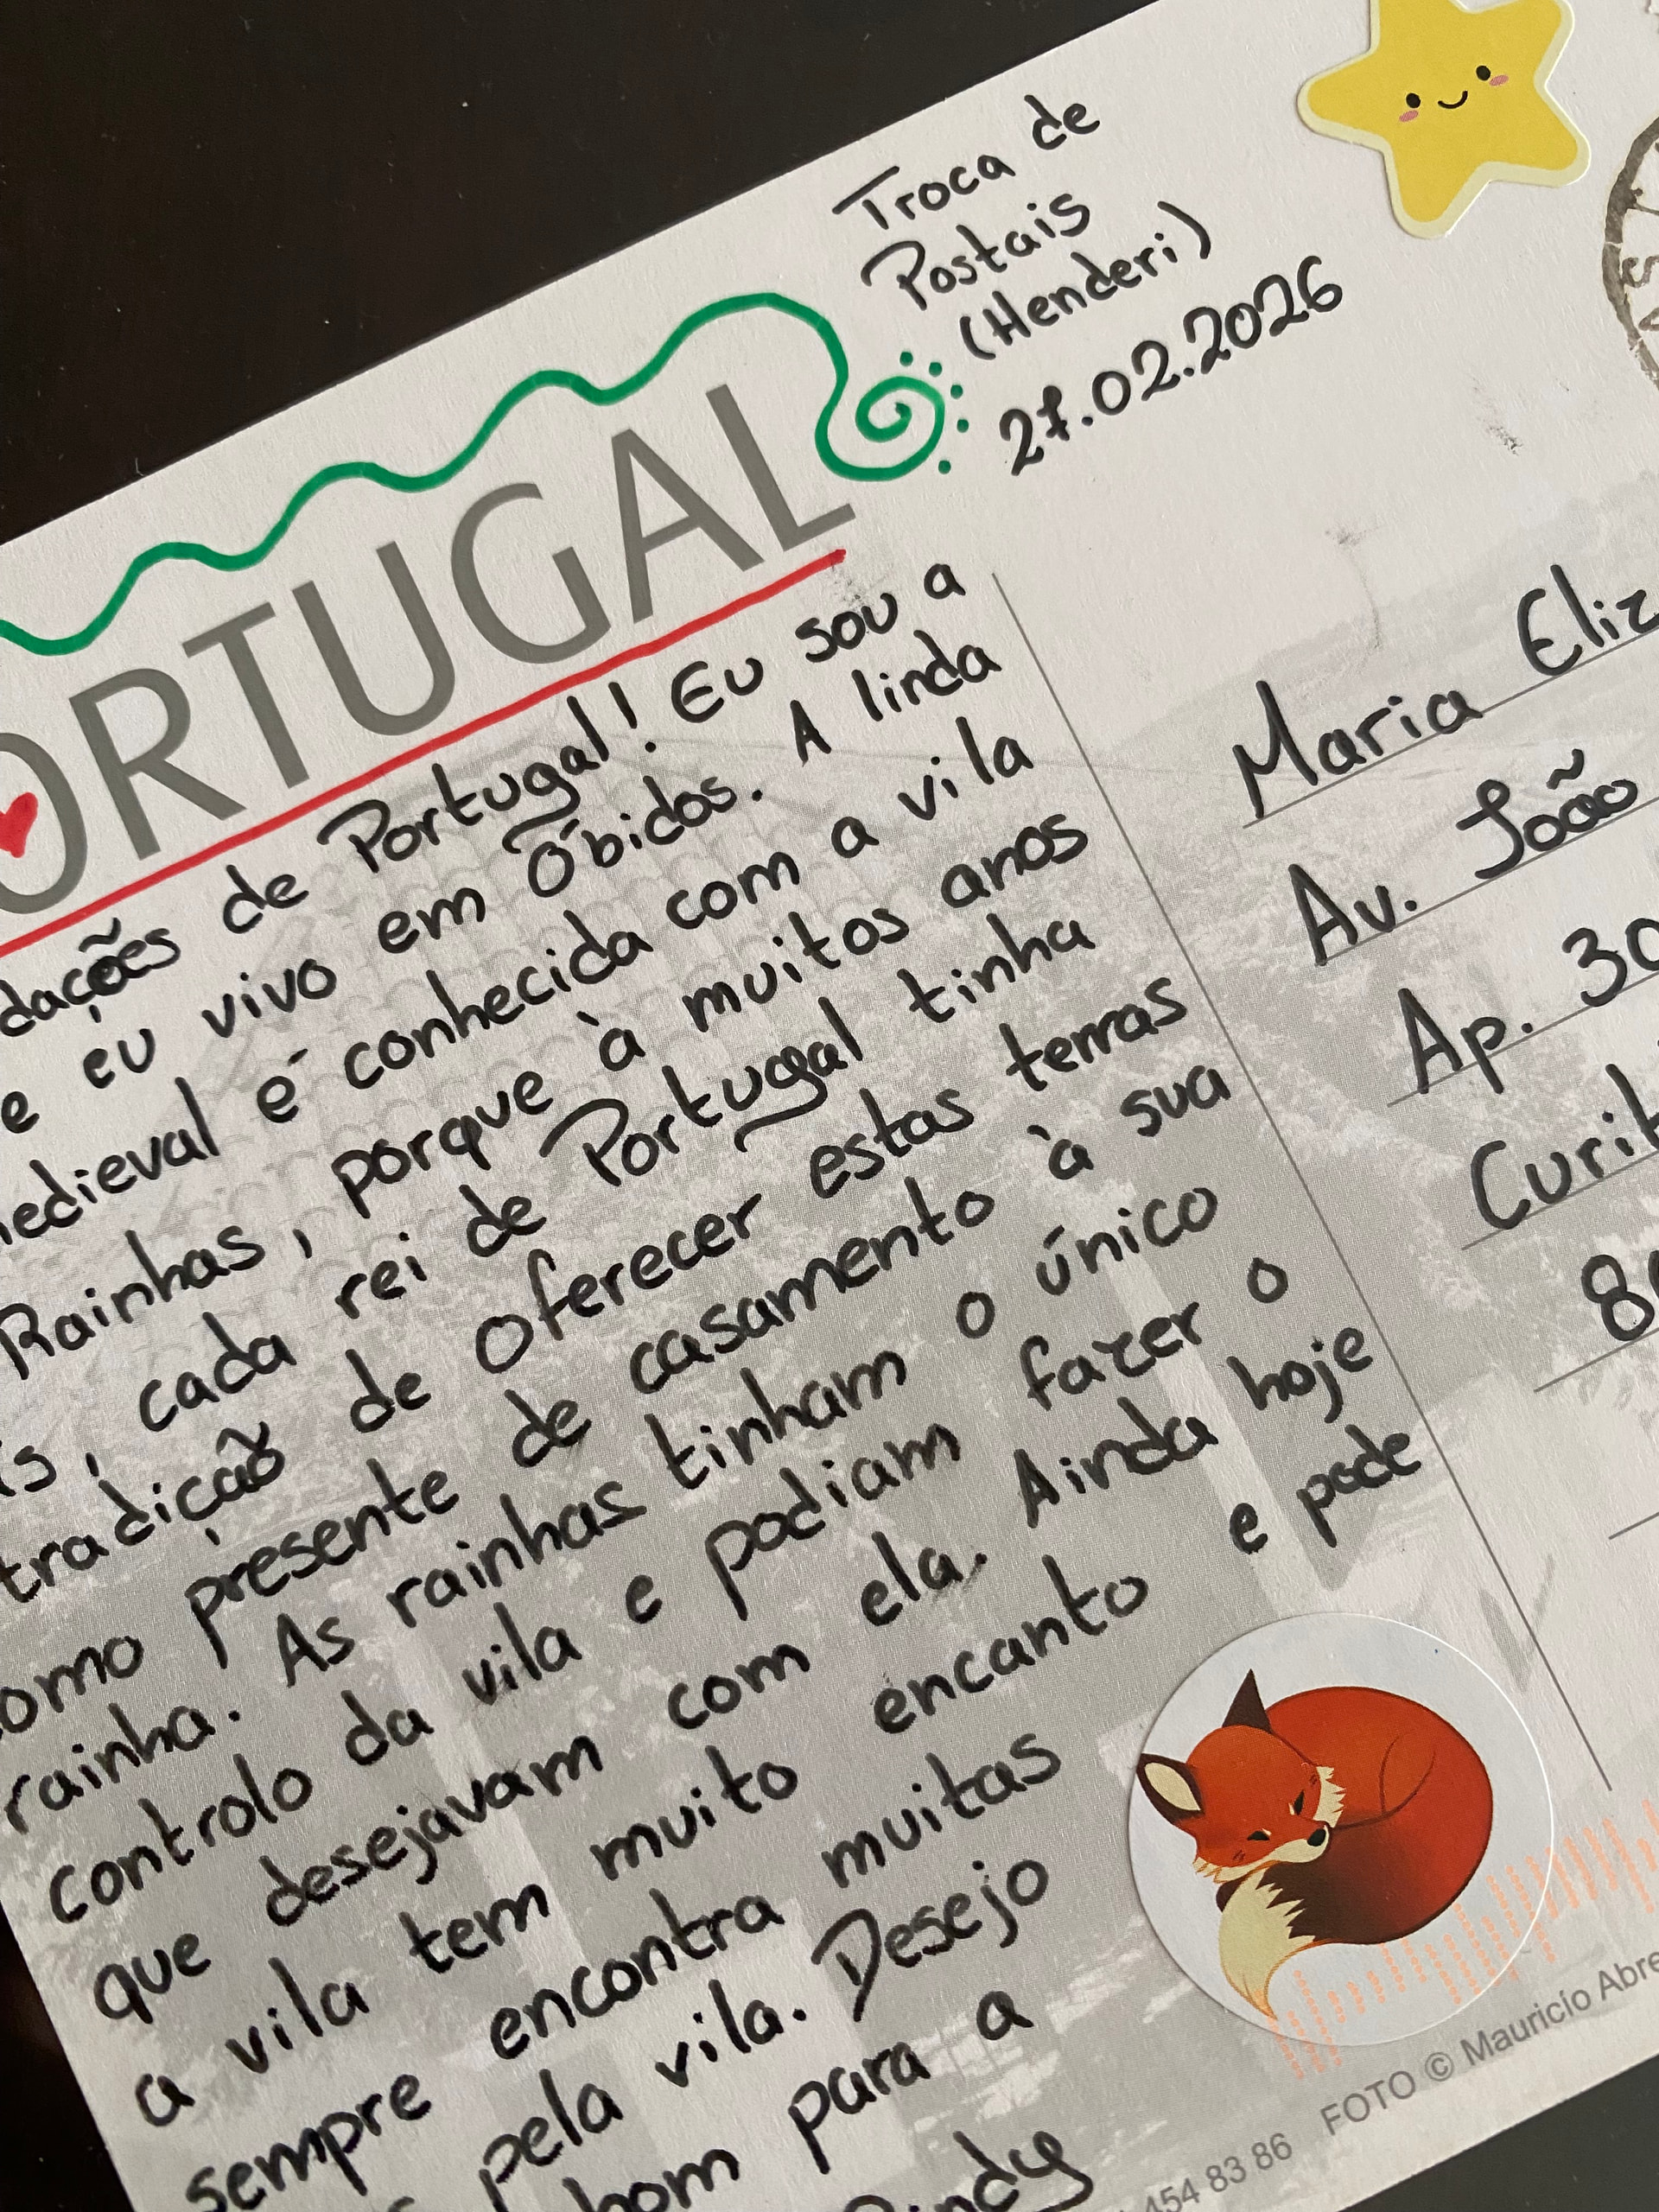 Troca de
Postais
(Henderi)
27.02.2026
PORTUGAL
dações de Portugal! Eu sou a
e eu vivo em Óbidos. A linda
medieval é conhecida com a vila
Rainhas, porque à muitos anos
s, cada rei de Portugal tinha
tradição de oferecer estas terras
omo presente de casamento à sua
rainha. As rainhas tinham o único
controlo da vila e podiam fazer o
que desejavam com ela. Ainda hoje
a vila tem muito encanto e pode
sempre encontra muitas
pela vila. Desejo
bom para a
Maria Eliz
Av. João
Ap. 30
Curit
8
454 83 86 FOTO © Mauricio Abre